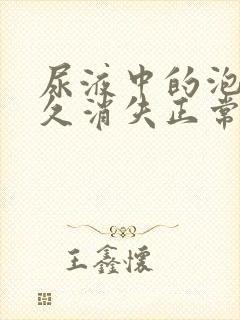 尿液中的泡
久消失正常
王鑫怀